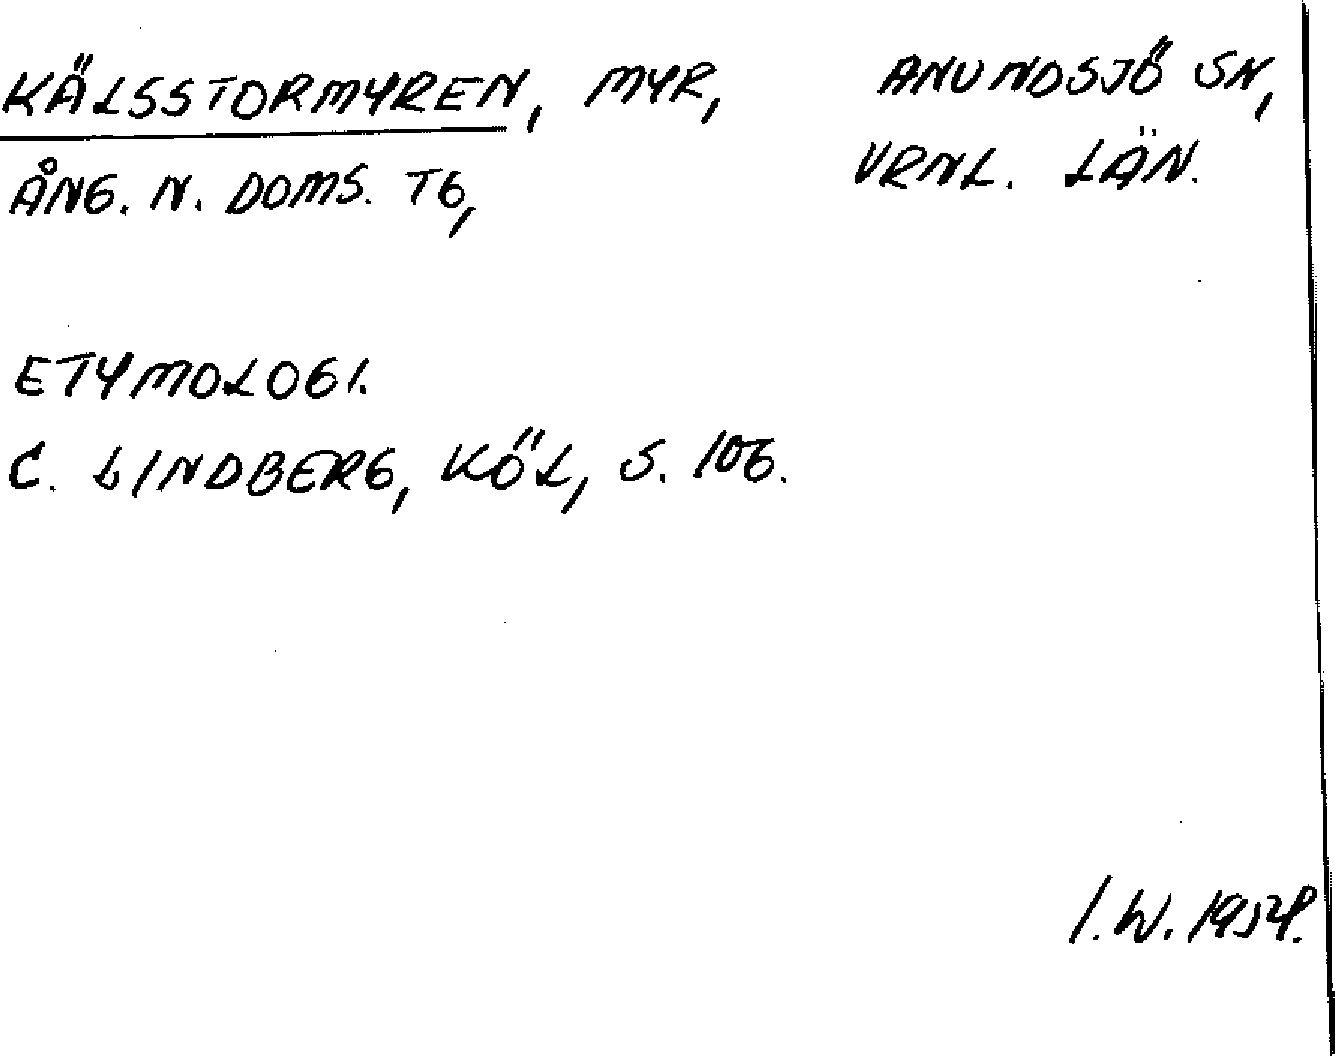 KÄLSSTORMYREN, MYR, ANUNDSJÖ SN,
ÅNG. N. DOMS. TG, VRNL. LÄN.
ETYMOLOGI.
C. LINDBERG, KÖL, S. 106.
I.W. 1954.